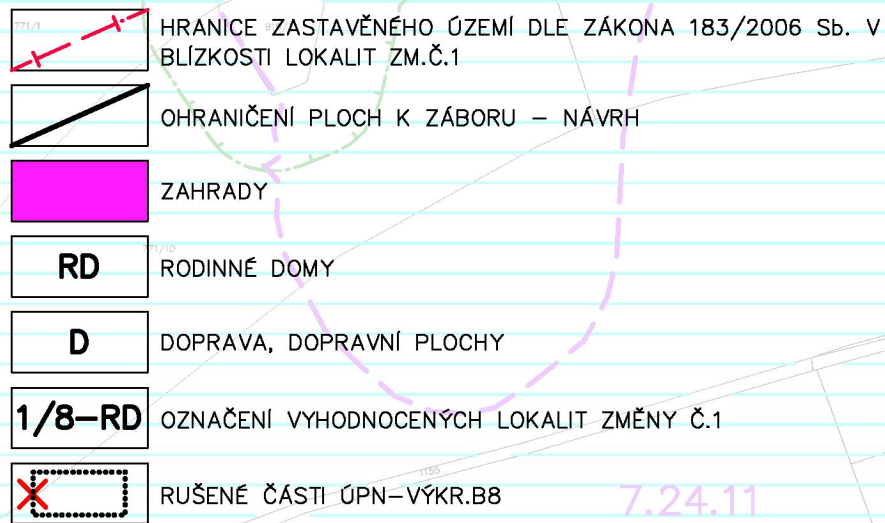 771/1
HRANICE ZASTAVĚNÉHO ÚZEMÍ DLE ZÁKONA 183/2006 Sb. V
BLÍZKOSTI LOKALIT ZM.Č.1
OHRANIČENÍ PLOCH K ZÁBORU – NÁVRH
ZAHRADY
771/10
RD RODINNÉ DOMY
D DOPRAVA, DOPRAVNÍ PLOCHY
1/8–RD OZNAČENÍ VYHODNOCENÝCH LOKALIT ZMĚNY Č.1
1155
RUŠENÉ ČÁSTI ÚPN–VÝKR.B8
7.24.11